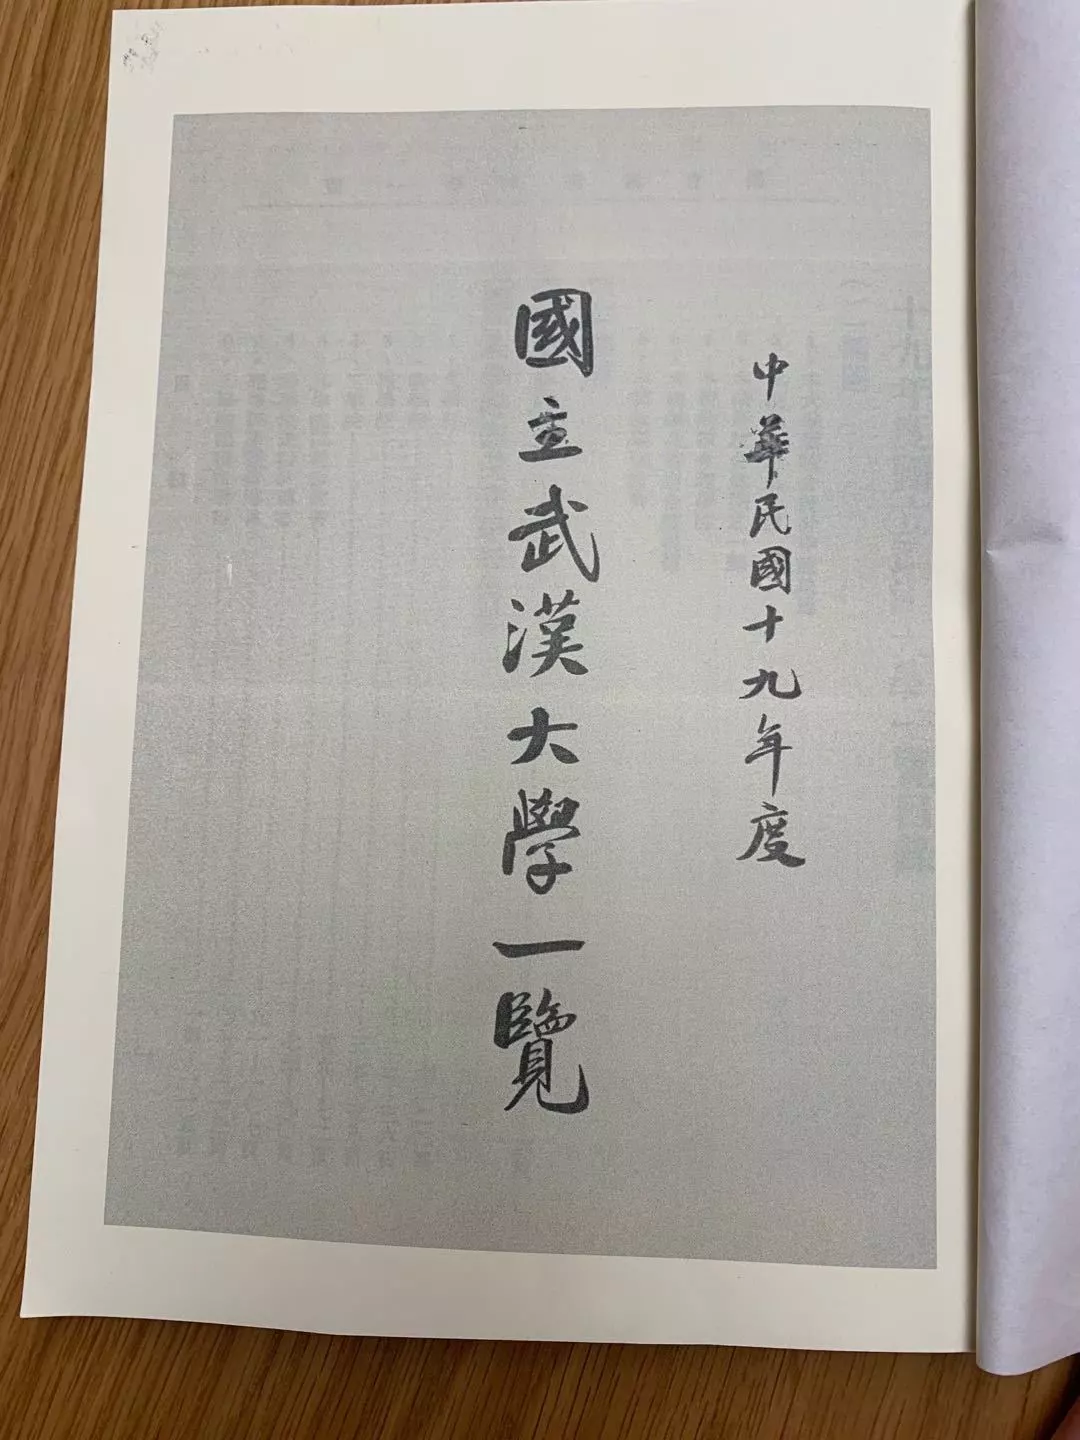 中華民國十九年度
國立武漢大學一覽